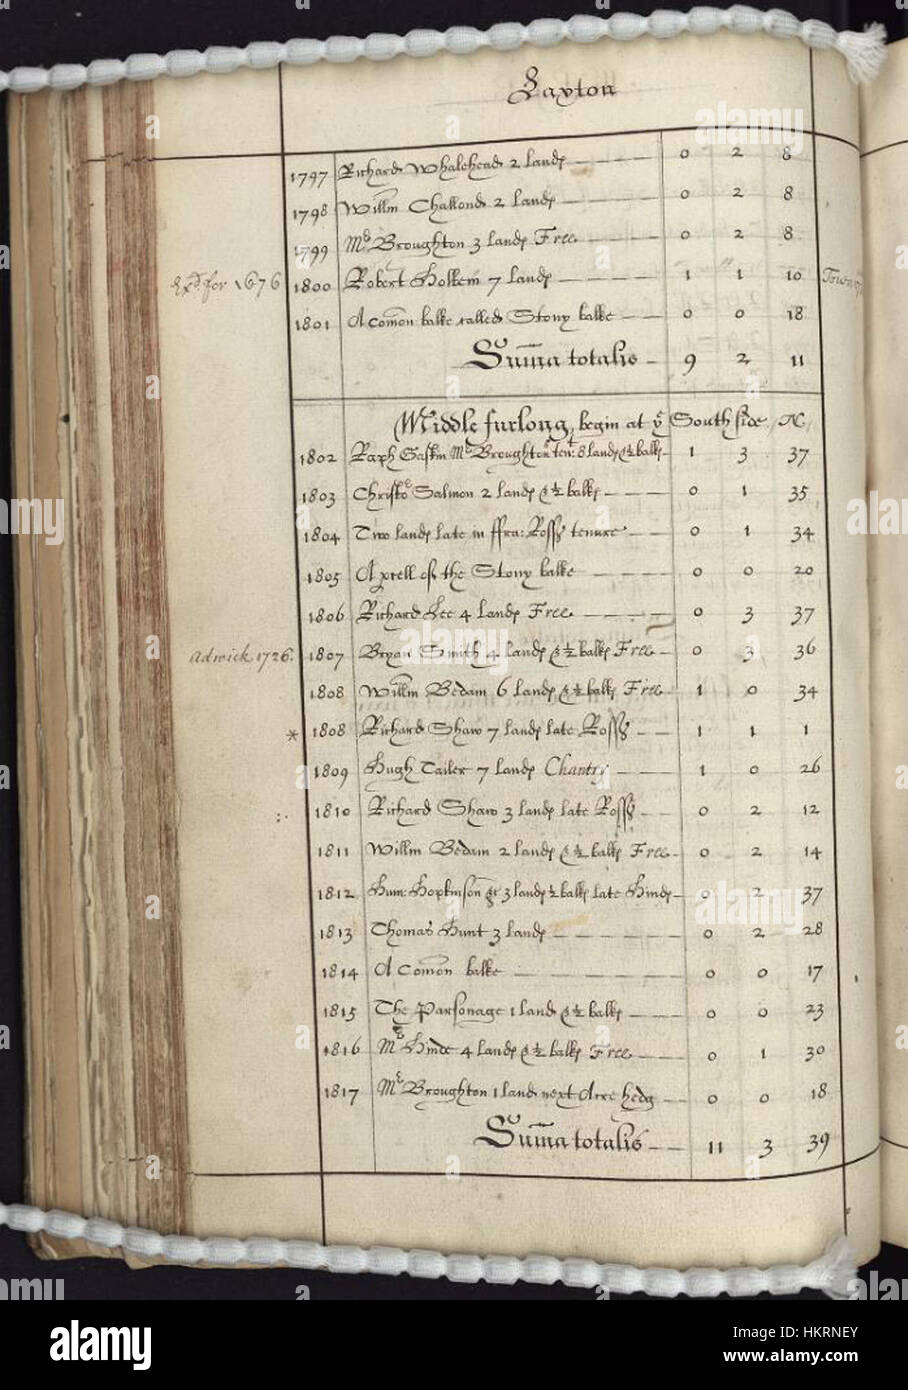 Laxton
1797 Richard Whalehead 2 lands 0 2 8
1798 Willm Challond 2 lands 0 2 8
1799 Mr Broughton 3 lands Free 0 2 8
Exd for 1676 1800 Robert Holbem 7 lands 1 1 10 Town
1801 A comon balke called Stony balke 0 0 18
Suma totalis 9 2 11
Middle furlong, begin at ye South side, N
1802 Raph Gaskin Mr Broughton ten: 8 lands & ½ balks 1 3 37
1803 Christo Salmon 2 lands & ½ balks 0 1 35
1804 Two lands late in ffra: Rosss tenure 0 1 34
1805 A prell of the Stony balke 0 0 20
1806 Richard Lee 4 lands Free 0 3 37
Adwick 1726. 1807 Bryan Smith 4 lands & ½ balks Free 0 3 36
1808 Willm Bedam 6 lands & ½ balks Free 1 0 34
* 1808 Richard Shaw 7 lands late Rosss 1 1 1
1809 Hugh Tailer 7 lands Chantry 1 0 26
1810 Richard Shaw 3 lands late Rosss 0 2 12
1811 Willm Bedam 2 lands & ½ balks Free 0 2 14
1812 Hum: Hopkinson gr 3 lands ½ balks late Hinds 0 2 37
1813 Thomas Hunt 3 lands 0 2 28
1814 A Comon balke 0 0 17
1815 The Parsonage 1 land & ½ balks 0 0 23
1816 Mr Hinde 4 lands & ½ balks Free 0 1 30
1817 Mr Broughton 1 land next Acre hedg 0 0 18
Suma totalis 11 3 39
alamy
Image ID: HKRNEY
www.alamy.com